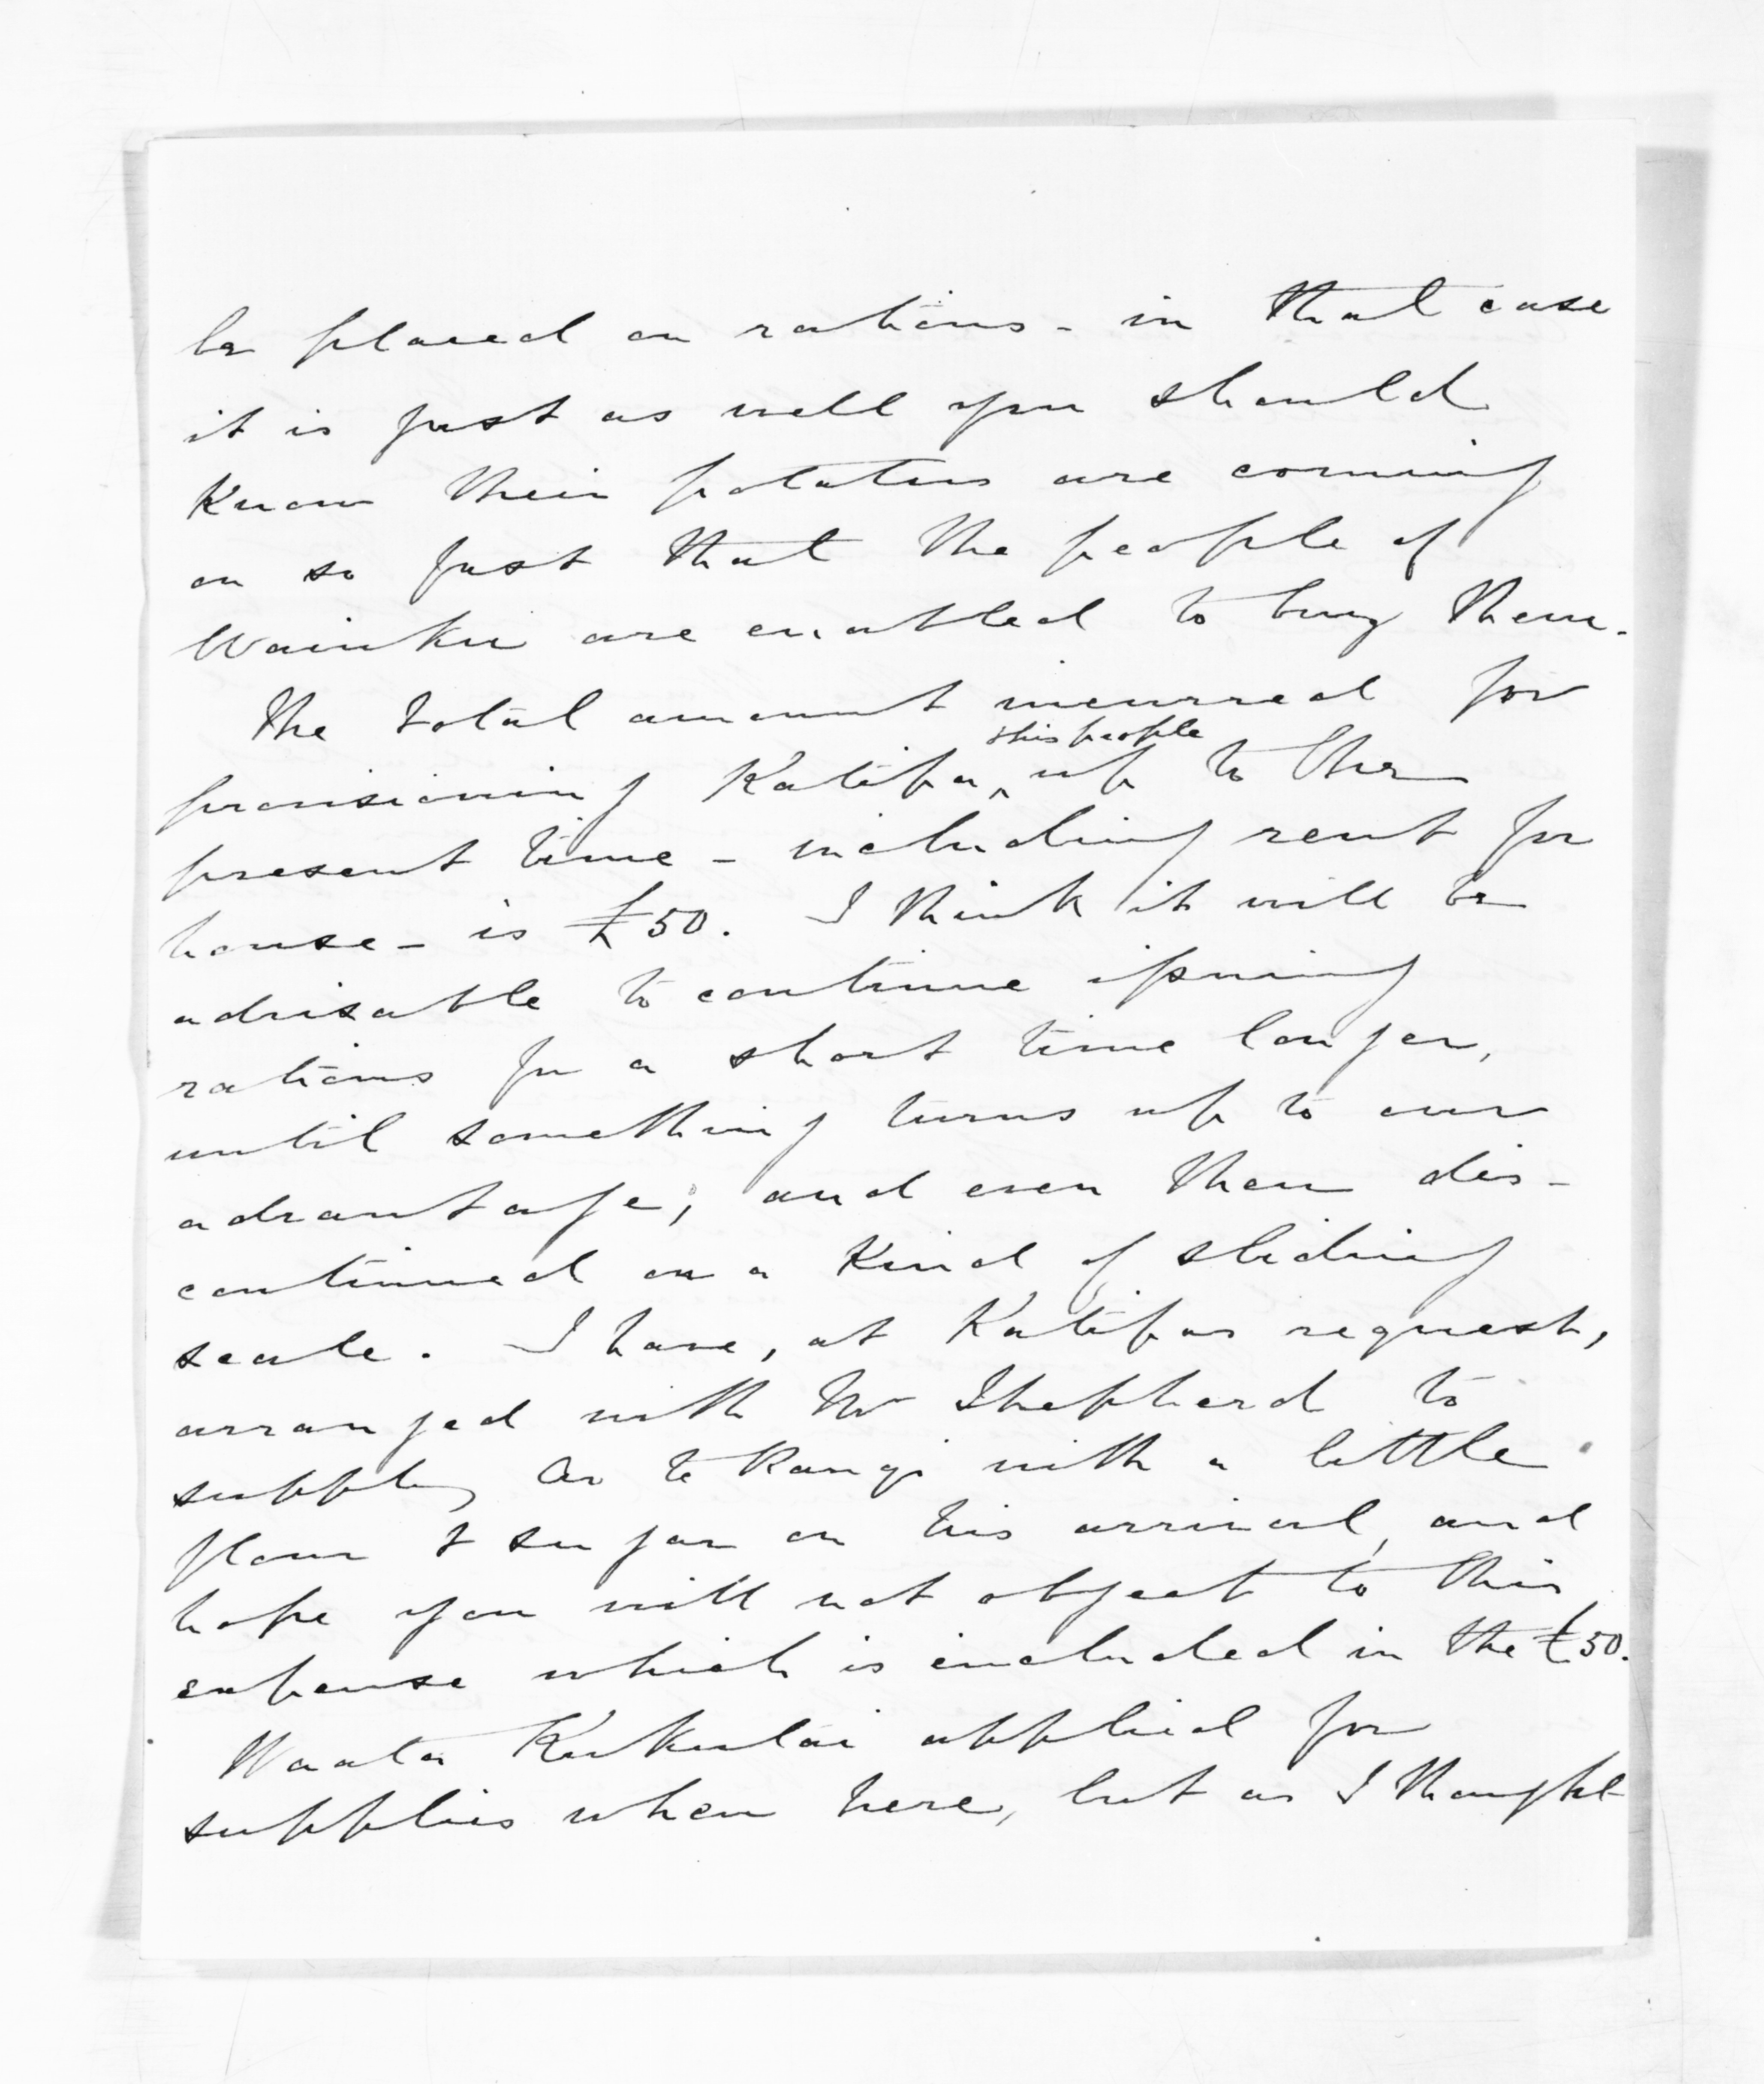 be placed on rations - in that case
it is just as well you should
Know their potatoes are coming
on so fast that the people of
Waiuku are enabled to buy them.
The total amount incurred for
provisioning Katipa ^ & his people up to the
present time - including rent for
house - is £50. I think it will be
advisable to continue issuing
rations for a short time longer,
until something turns up to our
advantage; and even then dis-
continued on a Kind of sliding
scale. I have, at Katipas request,
arranged with Mr Shepherd to
supply Te Rangi with a little
flour & sugar on his arrival, and
hope you will not object to this
expense which is included in the £50.
Waata Kukutai applied for
supplies when here, but as I thought